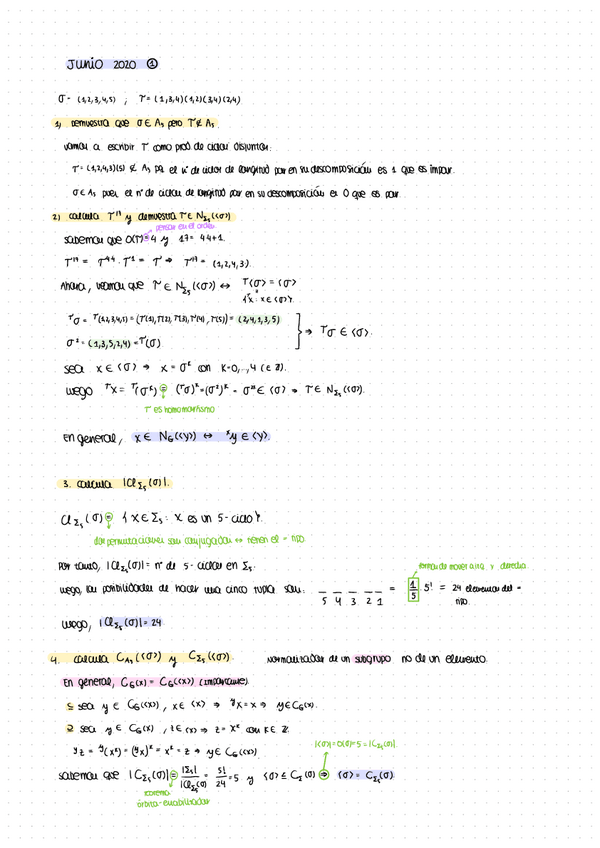 Junio 2020 ①
σ = (1,2,3,4,5) ; τ = (1,3,4)(1,2)(3,4)(2,4)
1) Demuestra que σ ∈ A₅ pero τ ∉ A₅
vamos a escribir τ como prod de ciclos disjuntos:
τ = (1,2,4,3)(5) ∉ A₅ pq el nº de ciclos de longitud par en su descomposición es 1 que es impar.
σ ∈ A₅ pues el nº de ciclos de longitud par en su descomposición es 0 que es par.
2) calcula τ¹⁷ y demuestra τ ∈ N_Σ₅(⟨σ⟩)
pensar en el orden
sabemos que O(τ) = 4 y 17 = 4·4+1.
τ¹⁷ = τ⁴·⁴ · τ¹ = τ¹ ⇒ τ¹⁷ = (1,2,4,3).
Ahora, veamos que τ ∈ N_Σ₅(⟨σ⟩) ↔ ᵗ⟨σ⟩ = ⟨σ⟩
{ᵗx : x ∈ ⟨σ⟩}
ᵗσ = ᵗ(1,2,3,4,5) = (τ(1), τ(2), τ(3), τ(4), τ(5)) = (2,4,1,3,5)
σ² = (1,3,5,2,4) = ᵗ(σ) } ⇒ ᵗσ ∈ ⟨σ⟩.
sea x ∈ ⟨σ⟩ ⇒ x = σᵏ con k=0,...,4 (∈ ℤ).
luego ᵗx = ᵗ(σᵏ) = (ᵗσ)ᵏ = (σ²)ᵏ = σ²ᵏ ∈ ⟨σ⟩ ⇒ τ ∈ N_Σ₅(⟨σ⟩).
τ es homomorfismo
En general, x ∈ N_G(⟨y⟩) ↔ ˣy ∈ ⟨y⟩.
3. calcula |Cl_Σ₅(σ)|.
Cl_Σ₅(σ) = {x ∈ Σ₅ : x es un 5-ciclo}.
dos permutaciones son conjugadas ↔ tienen el = tipo
Por tanto, |Cl_Σ₅(σ)| = nº de 5-ciclos en Σ₅.
formas de mover a izq y derecha
luego, las posibilidades de hacer una cinco tupla son: 5 4 3 2 1 = 1/5 · 5! = 24 elementos del = tipo.
luego, |Cl_Σ₅(σ)| = 24.
4. calcula C_A₅(⟨σ⟩) y C_Σ₅(⟨σ⟩). Normalizador de un subgrupo no de un elemento.
En general, C_G(x) = C_G(⟨x⟩) (importante).
⊆ sea y ∈ C_G(⟨x⟩), x ∈ ⟨x⟩ ⇒ ʸx = x ⇒ y ∈ C_G(x).
⊇ sea y ∈ C_G(x), z ∈ ⟨x⟩ ⇒ z = xᵏ con k ∈ ℤ.
ʸz = ʸ(xᵏ) = (ʸx)ᵏ = xᵏ = z ⇒ y ∈ C_G(⟨x⟩).
|⟨σ⟩| = O(σ) = 5 = |C_Σ₅(σ)|
sabemos que |C_Σ₅(σ)| = |Σ₅| / |Cl_Σ₅(σ)| = 5!/24 = 5 y ⟨σ⟩ ≤ C_Σ(σ) ⇒ ⟨σ⟩ = C_Σ₅(σ)
teorema
órbita-estabilizador